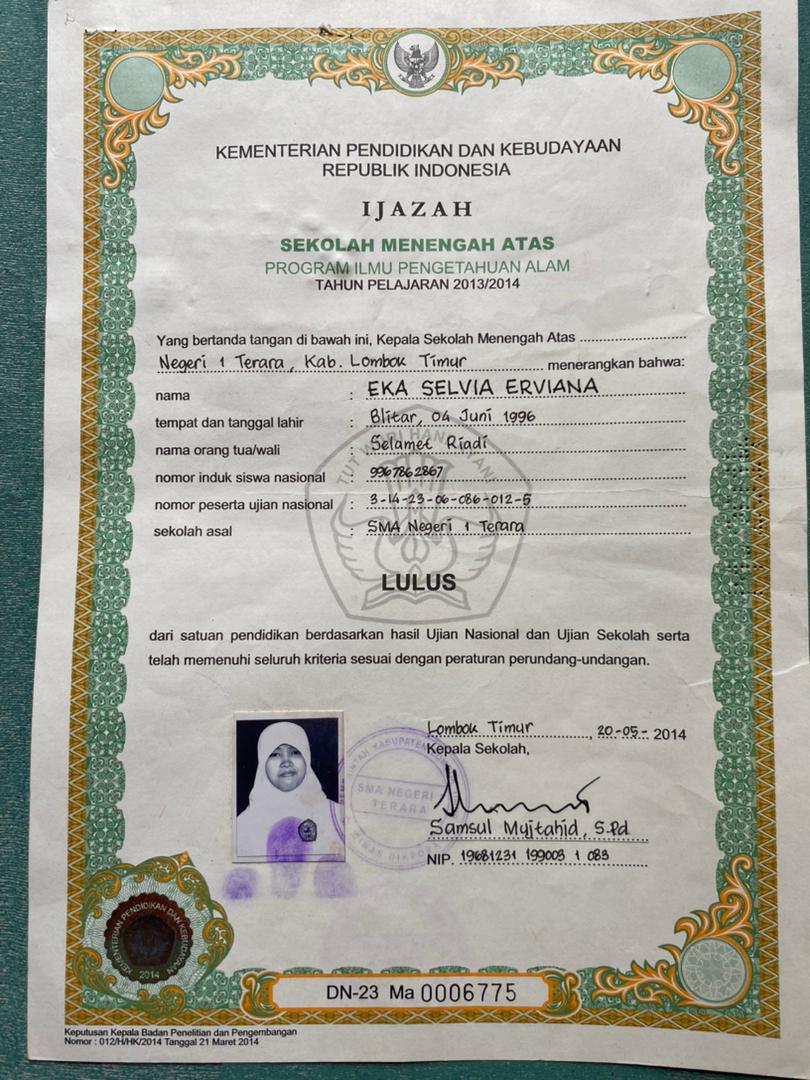 KEMENTERIAN PENDIDIKAN DAN KEBUDAYAAN
REPUBLIK INDONESIA
IJAZAH
SEKOLAH MENENGAH ATAS
PROGRAM ILMU PENGETAHUAN ALAM
TAHUN PELAJARAN 2013/2014
Yang bertanda tangan di bawah ini, Kepala Sekolah Menengah Atas
Negeri 1 Terara, Kab. Lombok Timur menerangkan bahwa:
nama : EKA SELVIA ERVIANA
tempat dan tanggal lahir : Blitar, 04 Juni 1996
nama orang tua/wali : Selamet Riadi
nomor induk siswa nasional : 9967862867
nomor peserta ujian nasional : 3-14-23-06-086-012-5
sekolah asal : SMA Negeri 1 Terara
TUT WURI HANDAYANI
LULUS
dari satuan pendidikan berdasarkan hasil Ujian Nasional dan Ujian Sekolah serta
telah memenuhi seluruh kriteria sesuai dengan peraturan perundang-undangan.
Lombok Timur, 20-05-2014
Kepala Sekolah,
SMA NEGERI
TERARA
Samsul Mujtahid, S.Pd
NIP. 19681231 199003 1 083
KEMENTERIAN PENDIDIKAN DAN KEBUDAYAAN
2014
DN-23 Ma 0006775
Keputusan Kepala Badan Penelitian dan Pengembangan
Nomor : 012/H/HK/2014 Tanggal 21 Maret 2014